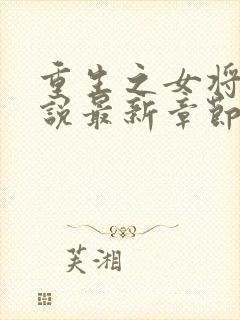 重生之女将
说最新章节
芙湘